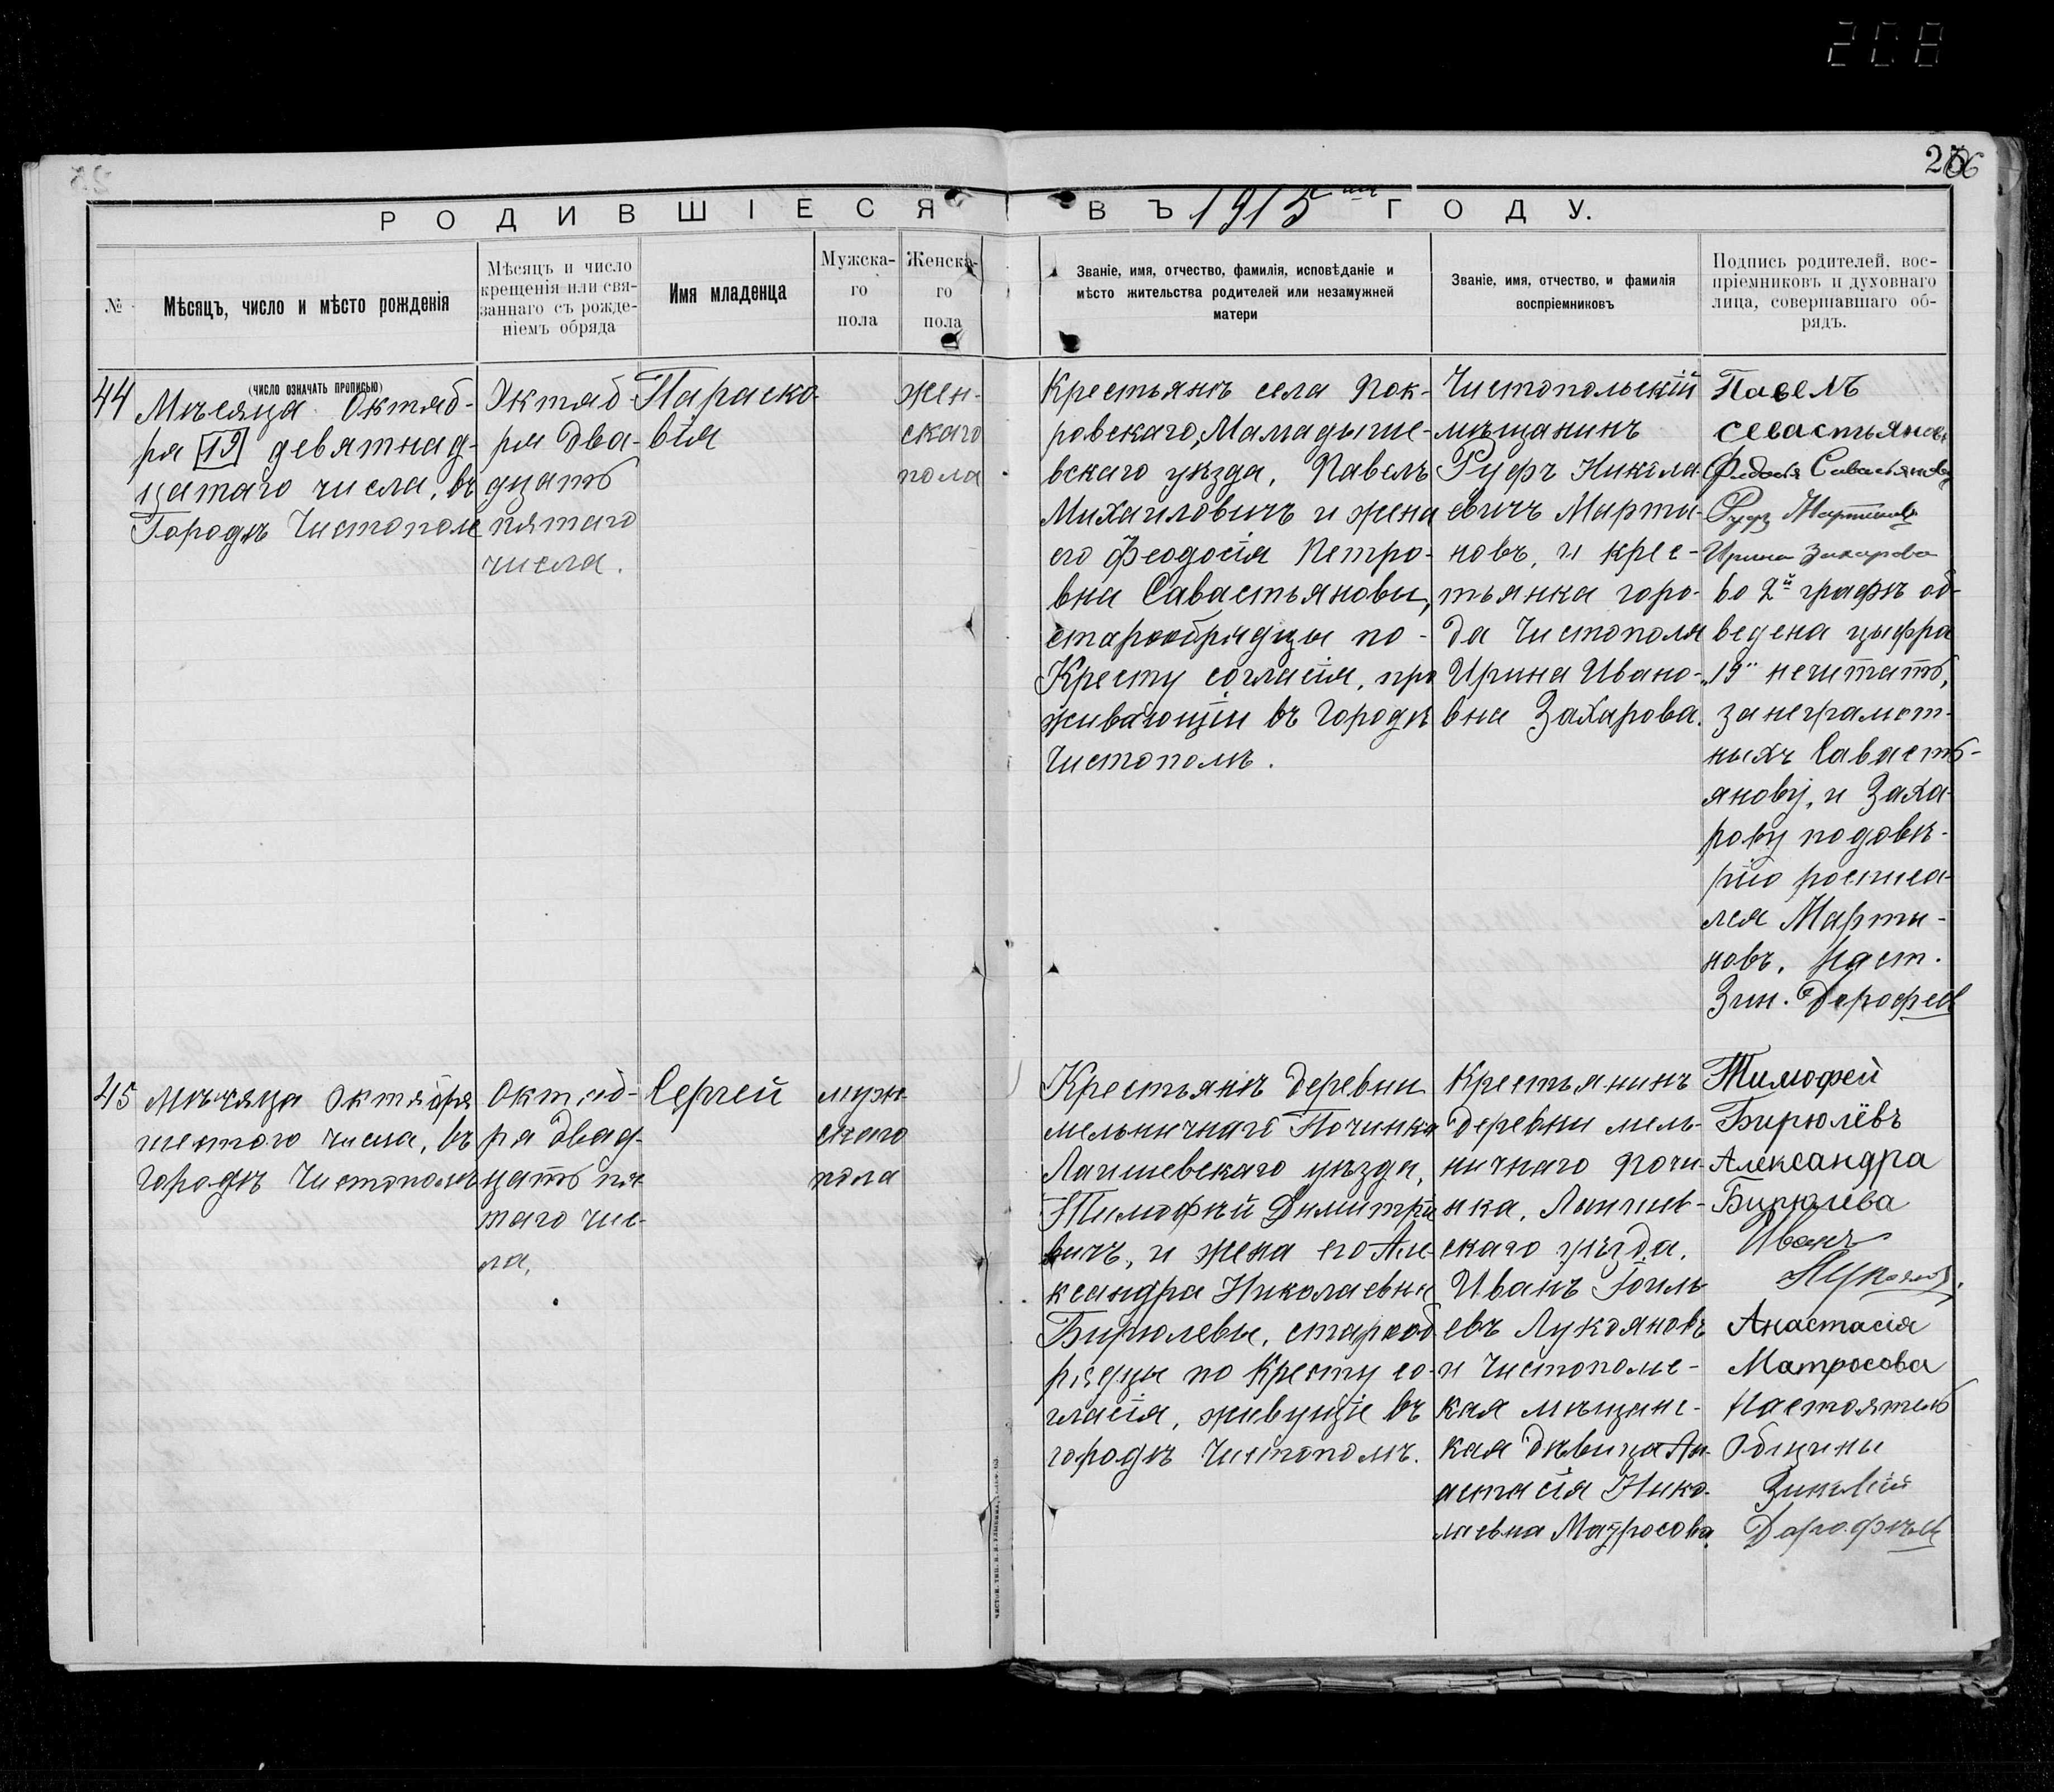 208
25
РОДИВШІЕСЯ ВЪ 1915 ГОДУ.
№
Мѣсяцъ, число и мѣсто рожденія
Мѣсяцъ и число
крещенія или свя-
заннаго съ рожде-
ніемъ обряда
Имя младенца
Мужска-
го
пола
Женска-
го
пола
Званіе, имя, отчество, фамилія, исповѣданіе и
мѣсто жительства родителей или незамужней
матери
Званіе, имя, отчество, и фамилія
воспріемниковъ
Подпись родителей, вос-
пріемниковъ и духовнаго
лица, совершавшаго об-
рядъ.
44
(число означать прописью)
Мѣсяца Октяб-
ря 19 девятнад-
цатаго числа, въ
Городѣ Чистополѣ
Октяб-
ря два-
дцать
пятаго
числа.
Параско-
вія
жен-
скаго
пола
Крестьянъ села Пок-
ровскаго, Мамадыше-
вскаго уѣзда, Павелъ
Михаиловичъ и жена
его Феодосія Петро-
вна Савастьяновы,
старообрядцы по-
Кресту согласія, про
живающіи въ Городѣ
Чистополѣ.
Чистопольскій
мѣщанинъ
Руфъ Никола-
евичъ Марти-
новъ, и крес-
тьянка горо-
да Чистополя
Ирина Ивано-
вна Захарова.
Павелъ
Севастьяновъ
Руфъ Мартиновъ
Ирина Захарова
во 2й графѣ об-
ведена цыфра
„19" нечитать,
за неграмот-
ныхъ Савасть-
янову, и Заха-
рову подовѣ-
рію росписа-
лся Марти-
новъ. Наст.
Зин. Дорофеев
45
Мѣсяца Октября
шестого числа, въ
городѣ Чистополѣ
Октяб-
ря двад-
цать пя-
таго чис-
ла,
Сергей
муж-
скаго
пола
Крестьянъ деревни
мельничнаго Починка
Лаишевскаго уѣзда,
Тимофѣй Димитрі
вичъ, и жена его Але-
ксандра Николаевна
Бирюлевы, старооб
рядцы по Кресту со-
гласія, живущіе въ
городѣ Чистополѣ.
Крестьянинъ
деревни мель-
ничнаго Почи-
нка, Лаишев-
скаго уѣзда,
Иванъ
евъ Лукояновъ
и Чистополс-
кая мѣщанс-
кая дѣвица Ан-
астасія Нико-
лаевна Матросова.
Тимофей
Бирюлёвъ
Александра
Бирюлёва
Иванъ
Анастасія
Матросова
Настоятель
Общины
Зиновій
Дорофѣев